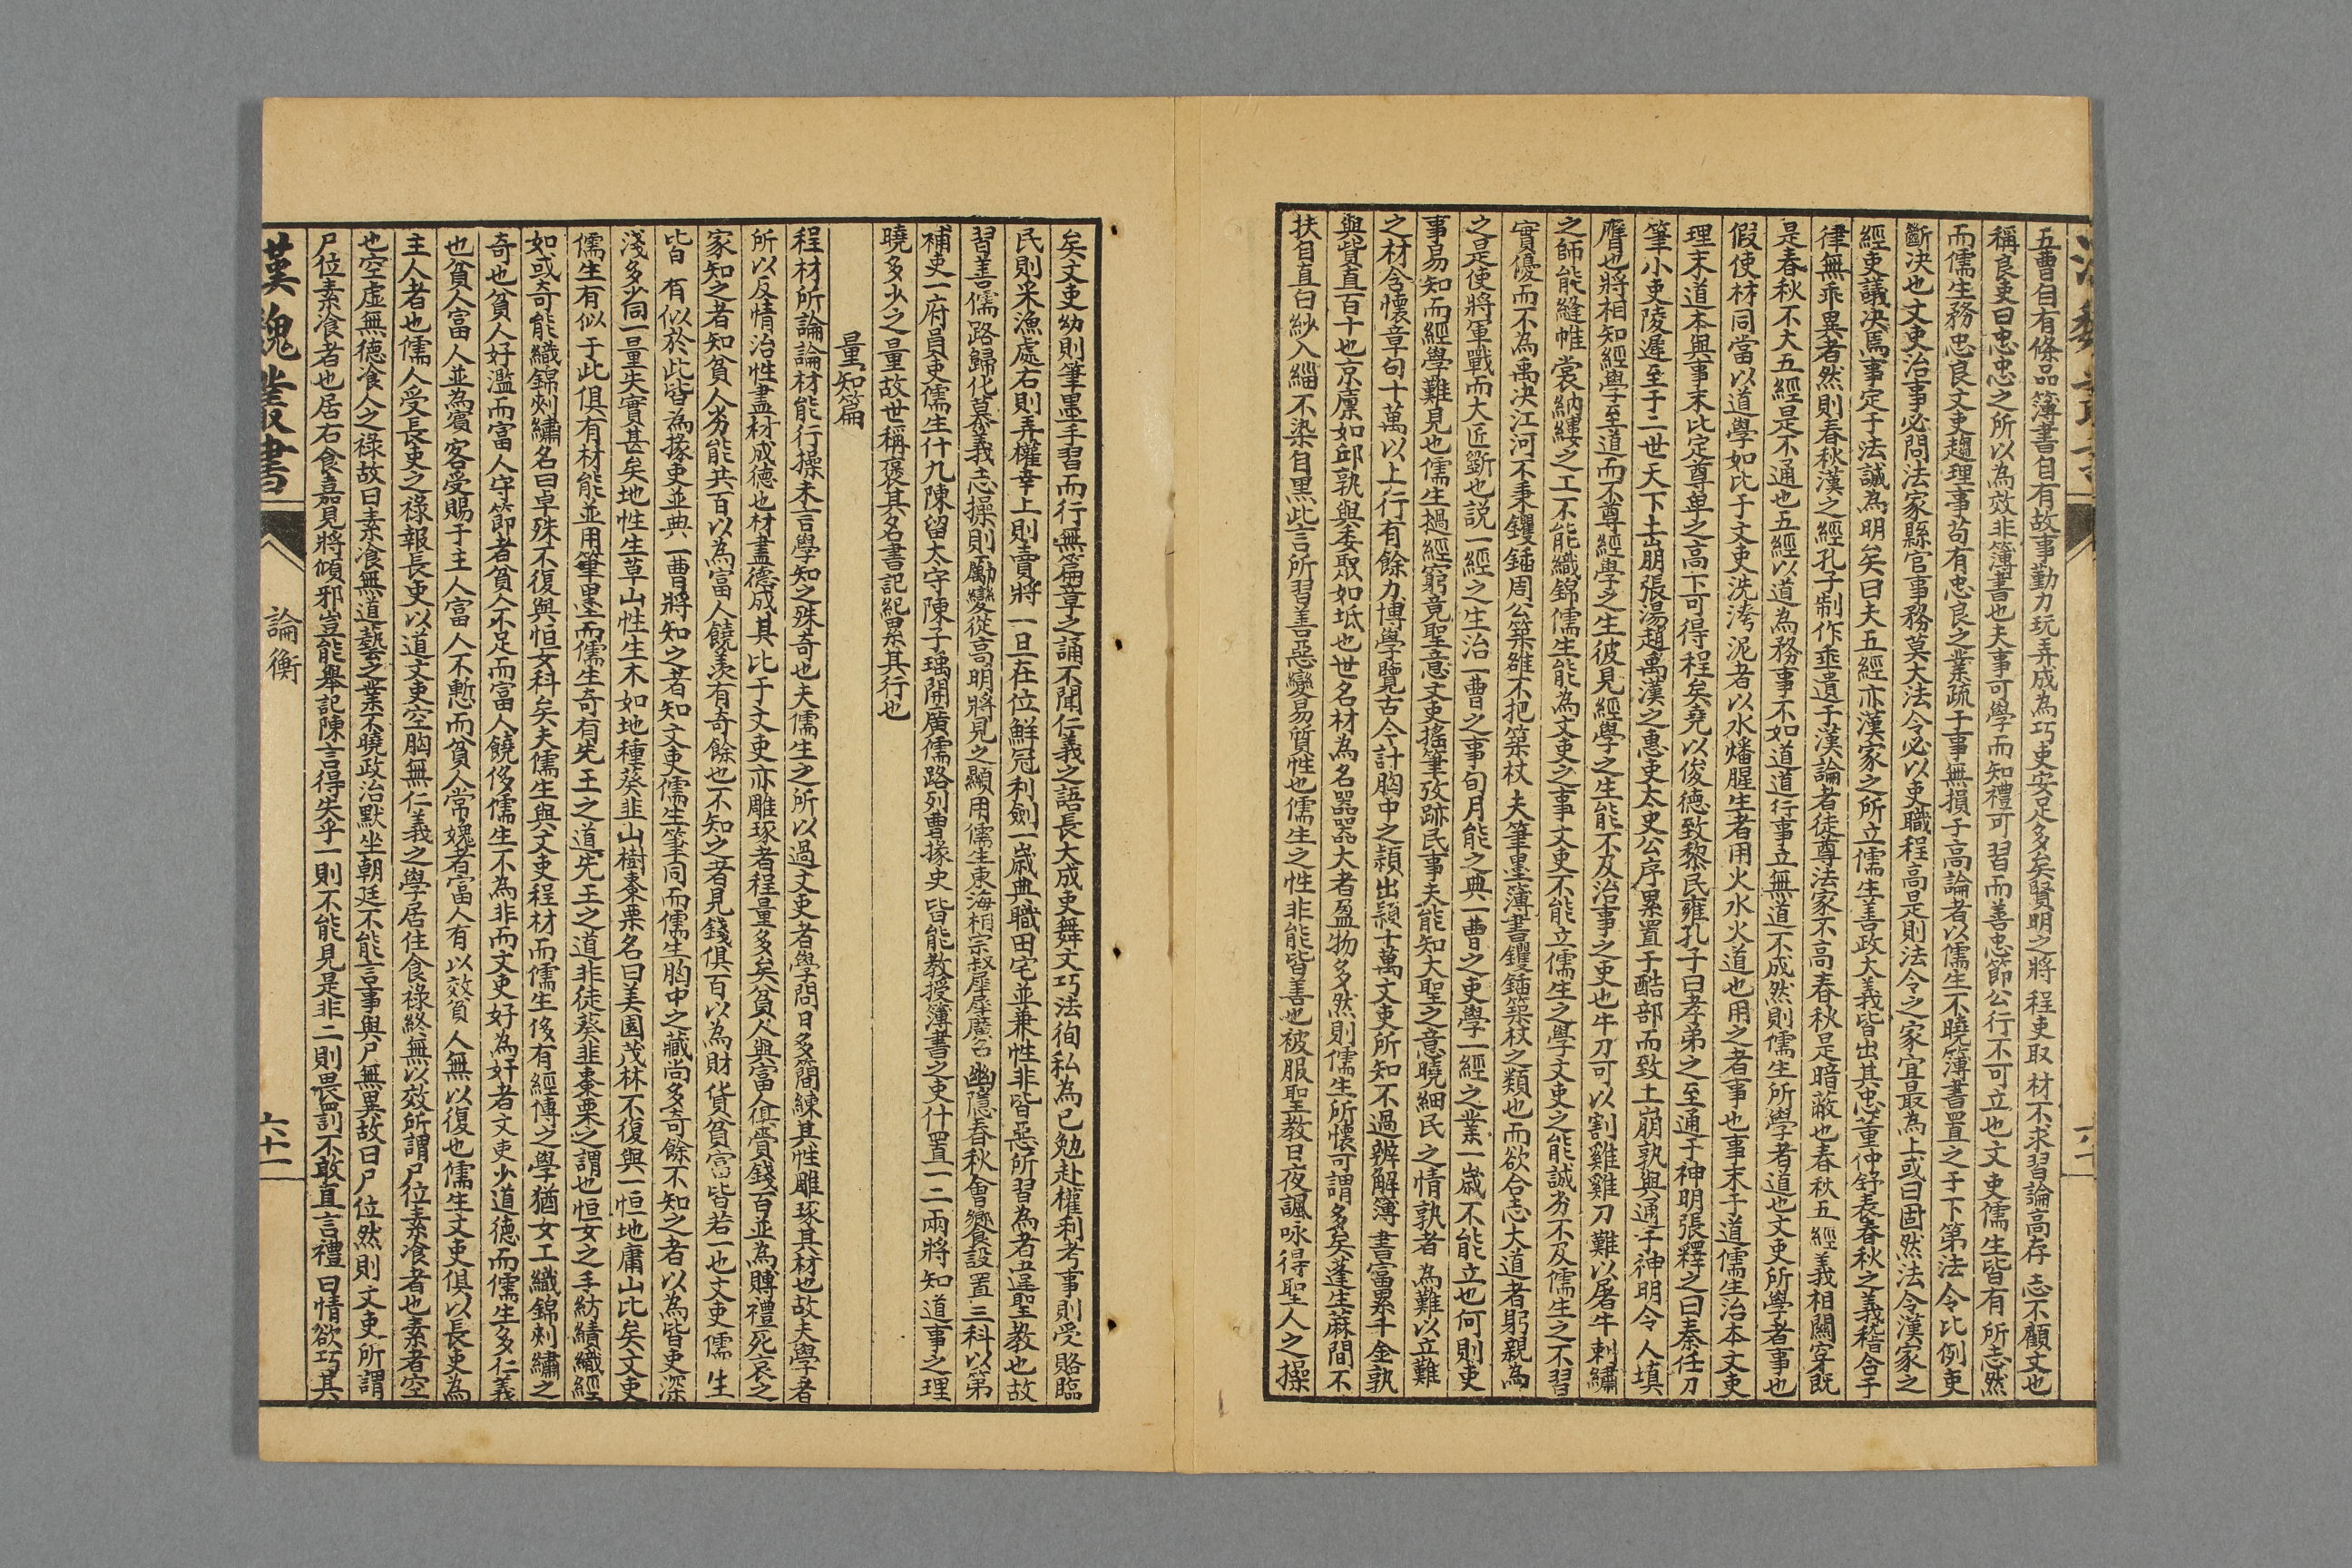 五曹自有條品簿書自有故事勤力玩弄成為巧吏安足多矣賢明之將程吏取材不求習論高存志不顧文也
稱良吏曰忠忠之所以為效非簿書也夫事可學而知禮可習而善忠節公行不可立也文吏儒生皆有所志然
而儒生務忠良文吏趨理事苟有忠良之業疏于事無損于高論者以儒生不曉簿書置之于下第法令比例吏
斷決也文吏治事必問法家縣官事務莫大法令必以吏職程高是則法令之家宜最為上或曰固然法令漢家之
經吏議決焉事定于法誠為明矣曰夫五經亦漢家之所立儒生善政大義皆出其忠董仲舒表春秋之義稽合于
律無乖異者然則春秋漢之經孔子制作垂遺于漢論者徒尊法家不高春秋是暗蔽也春秋五經義相關穿既
是春秋不大五經是不通也五經以道為務事不如道道行事立無道不成然則儒生所學者道也文吏所學者事也
假使材同當以道學如比于文吏洗洿泥者以水燔腥生者用火水火道也用之者事也事末于道儒生治本文吏
理末道本與事末比定尊卑之高下可得程矣堯以俊德致黎民雍孔子曰孝弟之至通于神明張釋之曰秦任刀
筆小吏陵遲至于二世天下土崩張湯趙禹漢之惠吏太史公序累置于酷部而致土崩孰與通于神明令人填
膺也將相知經學至道而不尊經學之生彼見經學之生能不及治事之吏也牛刀可以割雞雞刀難以屠牛刺繡
之師能縫帷裳納縷之工不能織錦儒生能為文吏之事文吏不能立儒生之學文吏之能誠劣不及儒生之不習
實優而不為禹決江河不秉钁鍤周公築雒不把築杖夫筆墨簿書钁鍤築杖之類也而欲合志大道者躬親為
之是使將軍戰而大匠斲也說一經之生治一曹之事旬月能之典一曹之吏學一經之業一歲不能立也何則吏
事易知而經學難見也儒生擿經窮竟聖意文吏搖筆攷跡民事夫能知大聖之意曉細民之情孰者為難以立難
之材含懷章句十萬以上行有餘力博學覽古今計胸中之穎出穎十萬文吏所知不過辦解簿書富累千金孰
與貲直百十也京廩如邱孰與委聚如坻也世名材為名器器大者盈物多然則儒生所懷可謂多矣蓬生蔴間不
扶自直白紗入緇不染自黑此言所習善惡變易質性也儒生之性非能皆善也被服聖教日夜諷咏得聖人之操
矣文吏幼則筆墨手習而行無篇章之誦不聞仁義之語長大成吏舞文巧法徇私為己勉赴權利考事則受賂臨
民則采漁處右則弄權幸上則賣將一旦在位鮮冠利劍一歲典職田宅並兼性非皆惡所習為者違聖教也故
習善儒路歸化慕義志操則勵變從高明將見之顯用儒生東海相宗叔犀犀廣召幽隱春秋會饗設置三科以第
補吏一府員吏儒生什九陳留太守陳子瑀開廣儒路列曹掾史皆能教授簿書之吏什置一二兩將知道事之理
曉多少之量故世稱褒其名書記紀累其行也
量知篇
程材所論論材能行操未言學知之殊奇也夫儒生之所以過文吏者學問日多簡練其性雕琢其材也故夫學者
所以反情治性盡材成德也材盡德成其比于文吏亦雕琢者程量多矣貧人與富人俱賫錢百並為賻禮死哀之
家知之者知貧人劣能共百以為富人饒羨有奇餘也不知之者見錢俱百以為財貨貧富皆若一也文吏儒生
皆有似於此皆為掾吏並典一曹將知之者知文吏儒生筆同而儒生胸中之藏尚多奇餘不知之者以為皆吏深
淺多少同一量失實甚矣地性生草山性生木如地種葵韭山樹棗栗名曰美園茂林不復與一恒地庸山比矣文吏
儒生有似于此俱有材能並用筆墨而儒生奇有先王之道先王之道非徒葵韭棗栗之謂也恒女之手紡績織經
如或奇能織錦刺繡名曰卓殊不復與恒女科矣夫儒生與文吏程材而儒生侈有經傳之學猶女工織錦刺繡之
奇也貧人好濫而富人守節者貧人不足而富人饒侈儒生不為非而文吏好為奸者文吏少道德而儒生多仁義
也貧人富人並為賓客受賜于主人富人不慙而貧人常媿者富人有以效貧人無以復也儒生文吏俱以長吏為
主人者也儒人受長吏之祿報長吏以道文吏空胸無仁義之學居住食祿終無以效所謂尸位素飡者也素者空
也空虛無德飡人之祿故曰素飡無道藝之業不曉政治默坐朝廷不能言事與尸無異故曰尸位然則文吏所謂
尸位素飡者也居右食嘉見將傾邪豈能舉記陳言得失乎一則不能見是非二則畏罰不敢直言禮曰情欲巧其
漢魏叢書
論衡
六十一